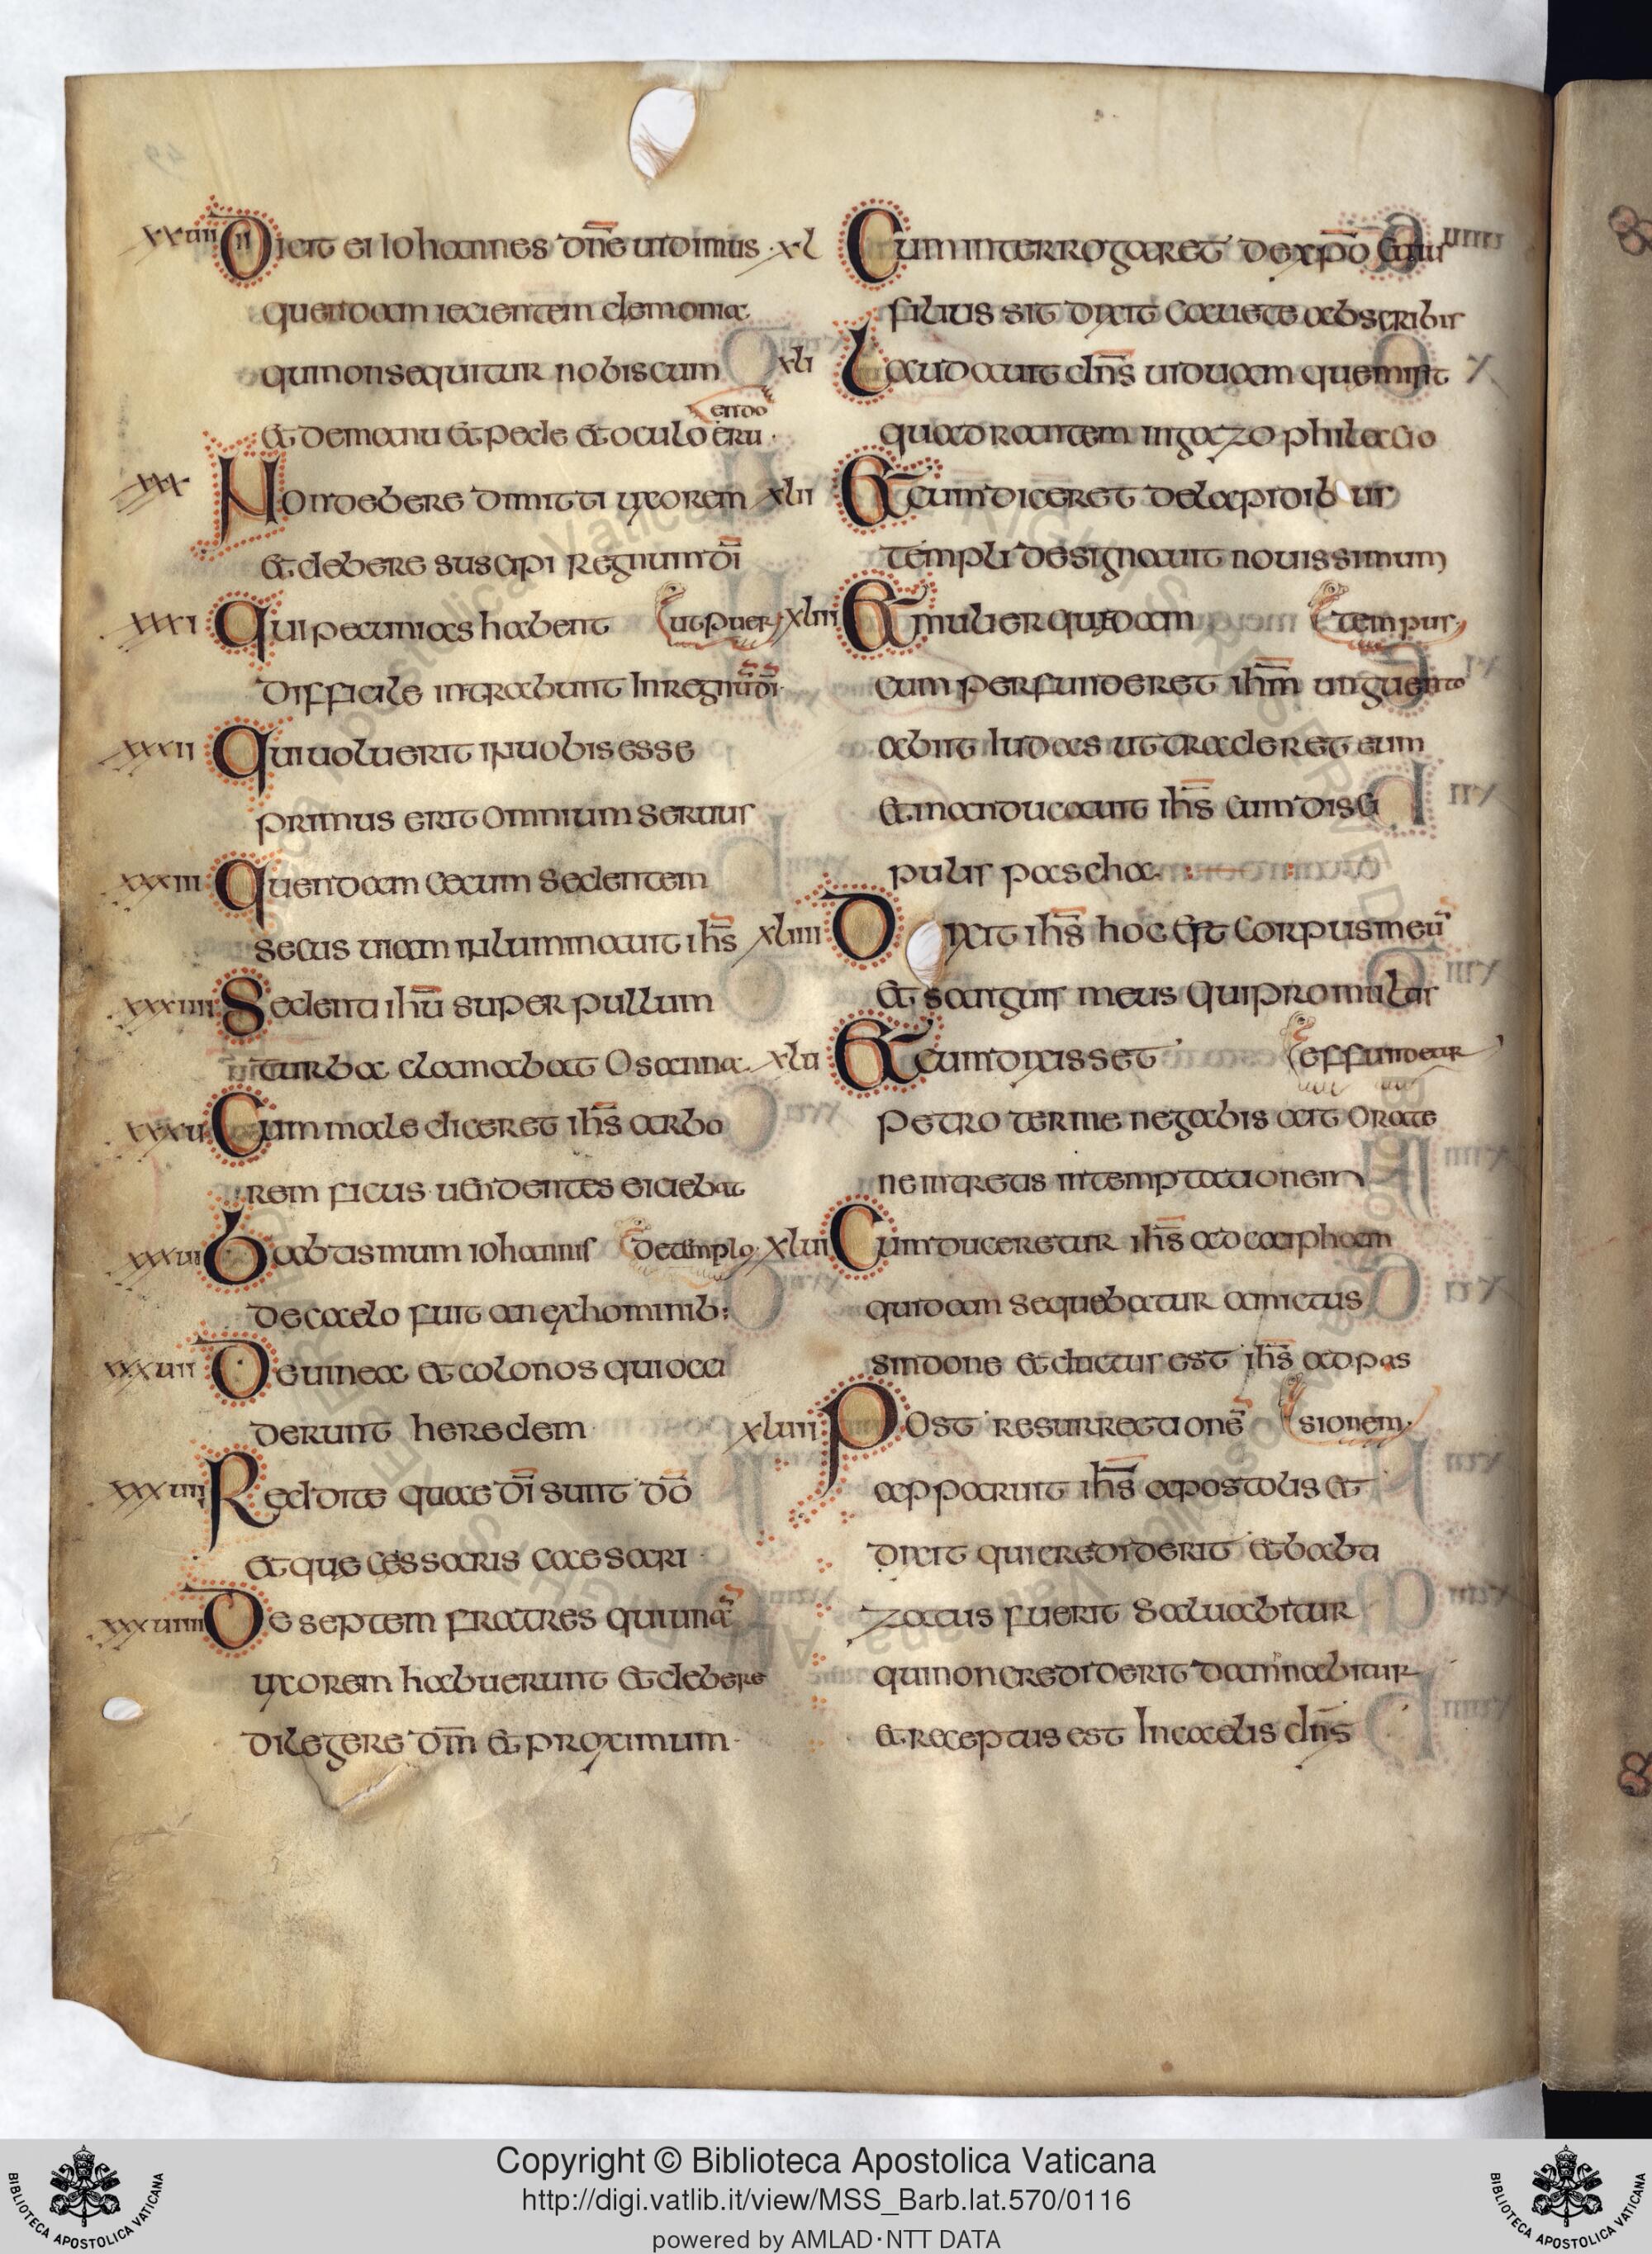 xxuiiii Dicit ei Iohannes dn̄e uidimus
quendam iecientem demonia
qui non sequitur nobiscum
et de manu et pede et oculo eru
endo
xxx Non debere dimitti uxorem
et debere suscipi regnum dī
ut puer
xxxi Qui pecunias habent
difficile intrabunt In regnū dī
xxxii Qui uoluerit in uobis esse
primus erit omnium seruus
xxxiii Quendam cecum sedentem
secus uiam inluminauit ihs̄
xxxiiii Sedenti ihū super pullum
turba clamabat Osanna
xxxu Cum male diceret ihs̄ arbo
rem ficus uendentes eiciebat
de templo
xxxui Babtismum iohannis
de caelo fuit an ex hominib:
xxxuii De uinea et colonos qui occi
derunt heredem
xxxuiii Reddite quae dī sunt dō
et que cessaris caesari
xxxuiiii De septem fratres qui unā
uxorem habuerunt et debere
dilegere dm̄ et proximum
xl Cum interrogaret de xp̄o cuius
filius sit dixit Cauete ab scribis
xli Laudauit dn̄s uiduam que misit
quadrantem in gazophilacio
xlii Et cum diceret de lapidib us
templi designauit nouissimum
tempus
xliii Et mulier quidam
cum perfunderet ihm̄ unguento
abiit Iudas ut traderet eum
et manducauit ihs̄ cum disci
pulis pascha
xliiii Dixit ihs̄ hoc est Corpus meū
et sanguis meus qui pro multis
effundetur
xlu Et cum dixisset
petro ter me negabis ait orate
ne intretis in temptationem
xlui Cum duceretur ihs̄ ad caipham
quidam sequebatur amictus
sindone et ductus est ihs̄ ad pas
sionem
xluii Post resurrectionē
apparuit ihs̄ apostolis et
dixit qui crediderit et babti
zatus fuerit saluabitur
qui non crediderit damnabitur
et receptus est In caelis dn̄s
Copyright © Biblioteca Apostolica Vaticana
http://digi.vatlib.it/view/MSS_Barb.lat.570/0116
powered by AMLAD·NTT DATA
BIBLIOTECA APOSTOLICA VATICANA
BIBLIOTECA APOSTOLICA VATICANA